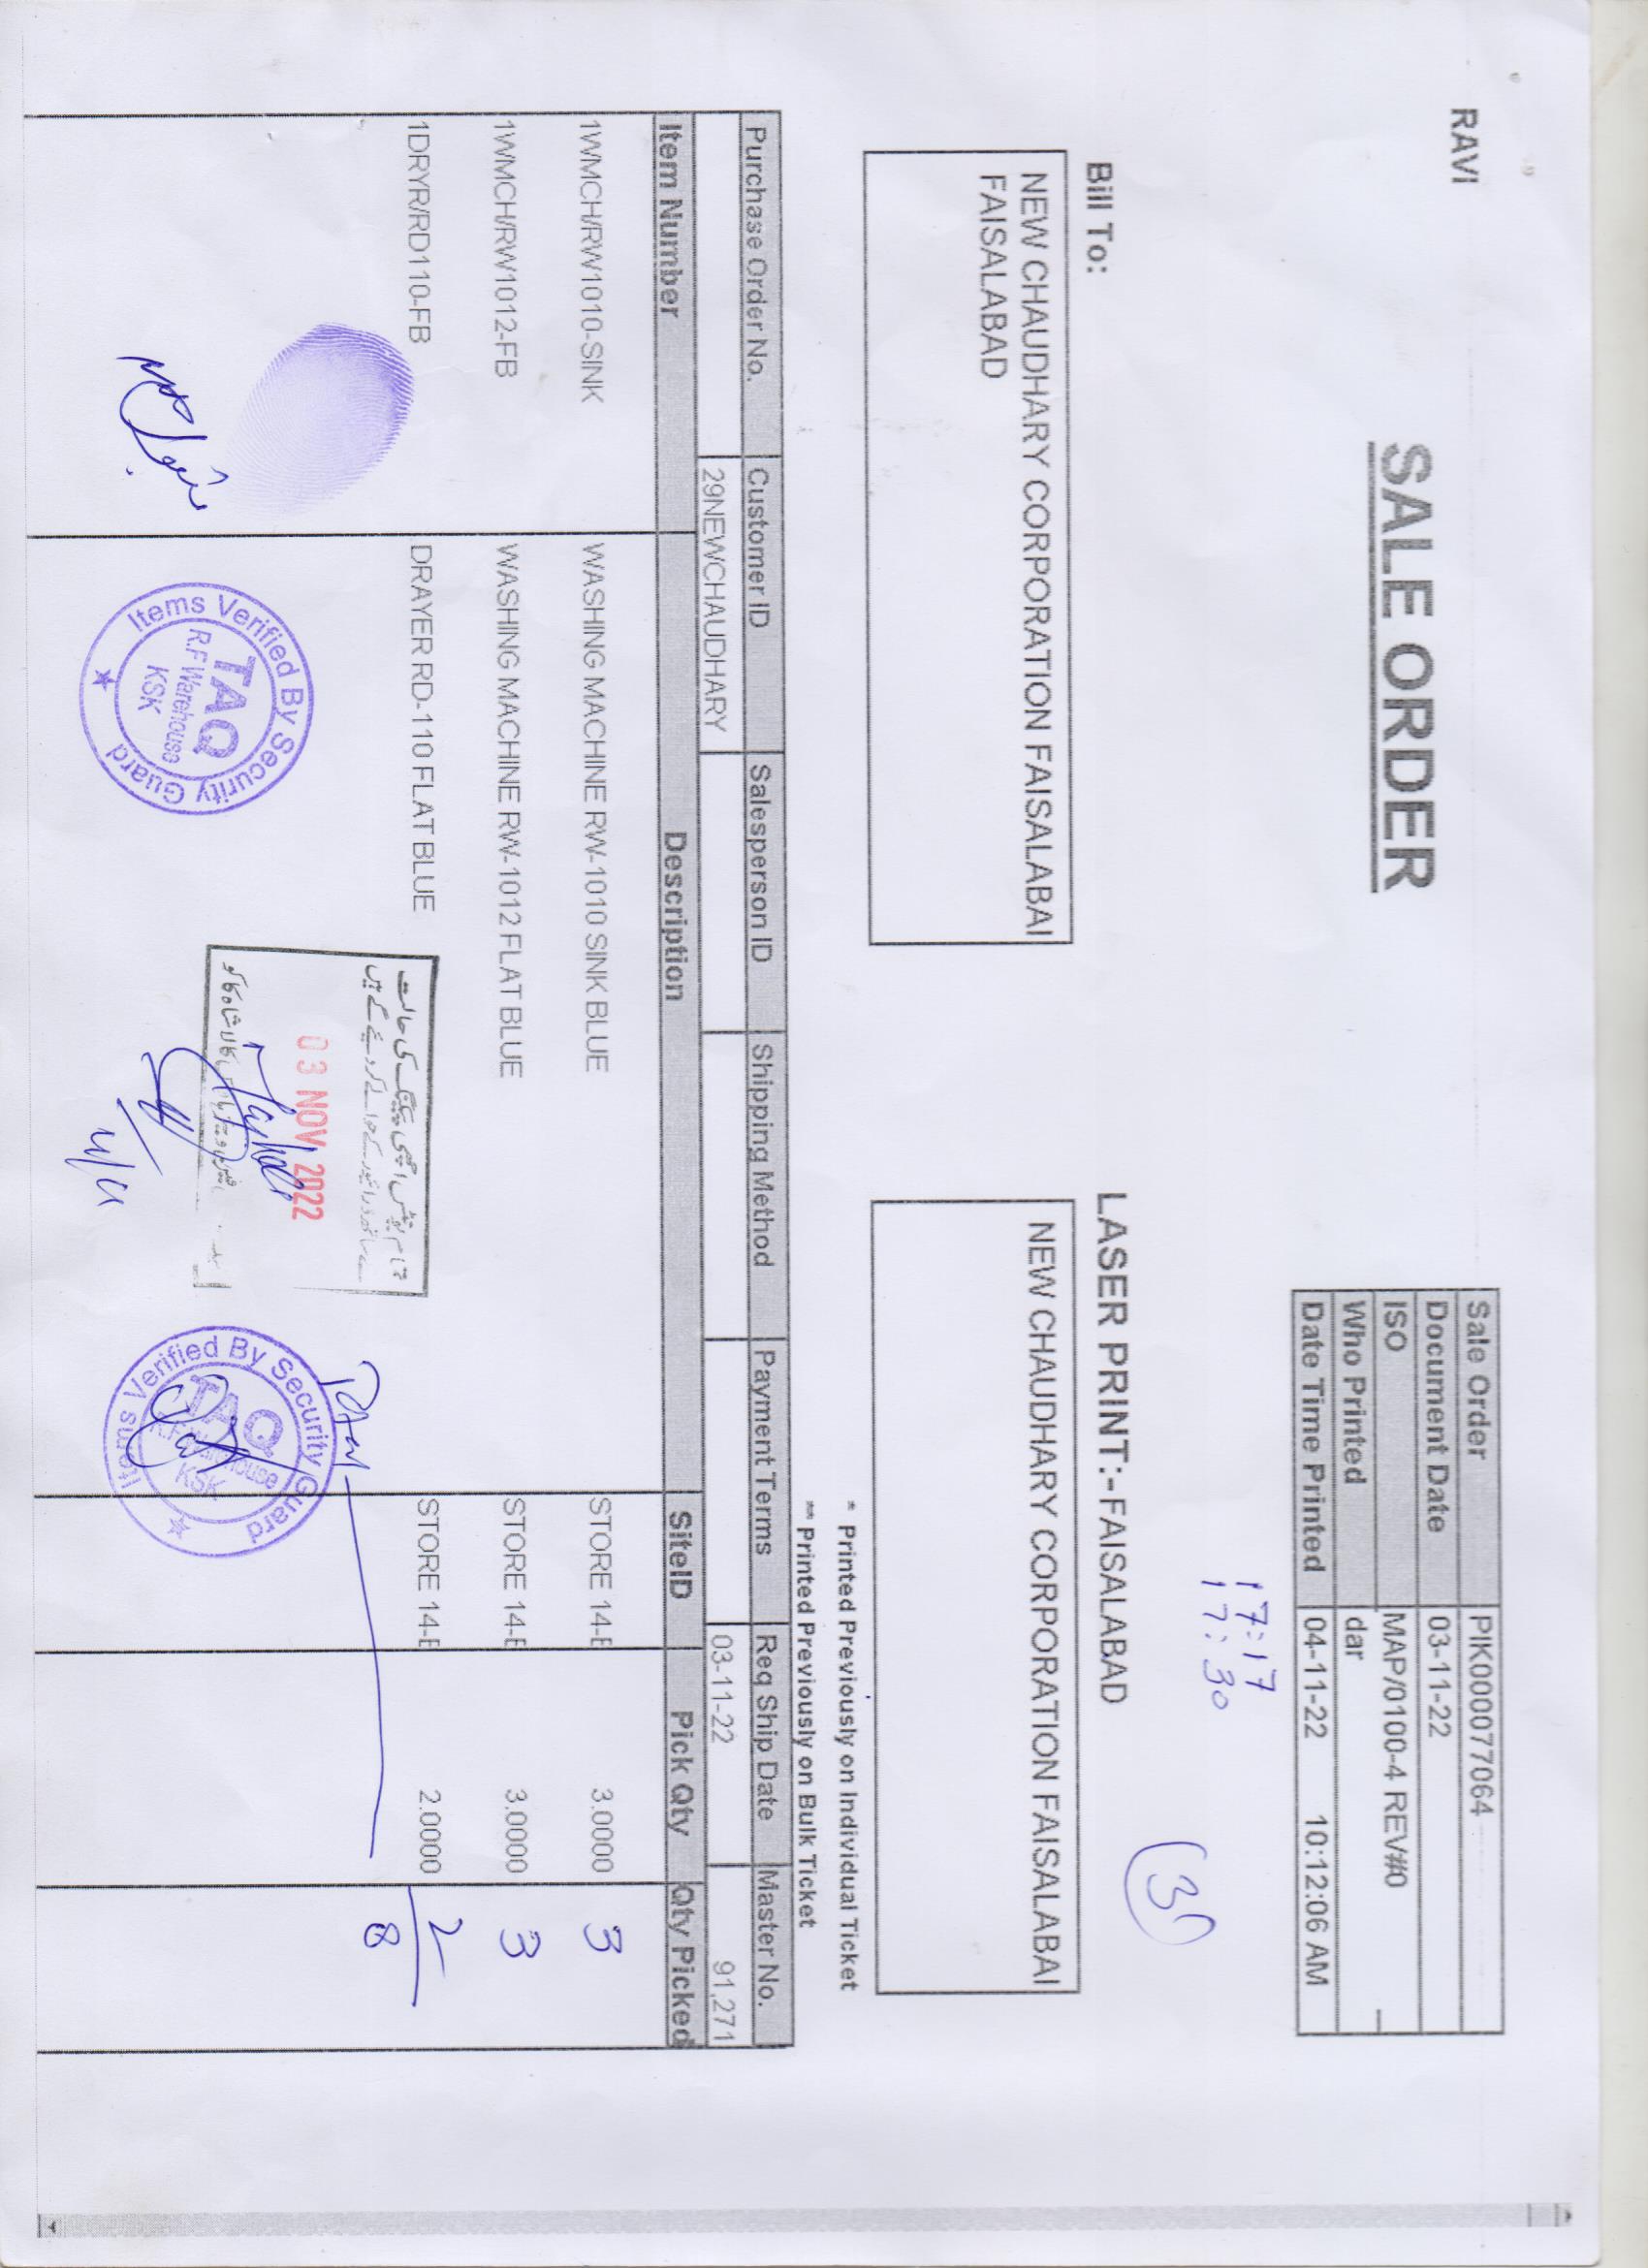 RAVI
SALE ORDER
Sale Order PIK000077064
Document Date 03-11-22
ISO MAP/0100-4 REV#0
Who Printed dar
Date Time Printed 04-11-22 10:12:06 AM
17:17
17:30
3
Bill To:
NEW CHAUDHARY CORPORATION FAISALABAI
FAISALABAD
LASER PRINT:-FAISALABAD
NEW CHAUDHARY CORPORATION FAISALABAI
* Printed Previously on Individual Ticket
** Printed Previously on Bulk Ticket
Purchase Order No. Customer ID Salesperson ID Shipping Method Payment Terms Req Ship Date Master No.
29NEWCHAUDHARY 03-11-22 91,271
Item Number Description SiteID Pick Qty Qty Picked
1WMCH/RW1010-SINK WASHING MACHINE RW-1010 SINK BLUE STORE 14-E 3.0000 3
1WMCH/RW1012-FB WASHING MACHINE RW-1012 FLAT BLUE STORE 14-E 3.0000 3
1DRYR/RD110-FB DRAYER RD-110 FLAT BLUE STORE 14-E 2.0000 2
8
تمام یونٹس اچھی پیکنگ کی حالت
کے ساتھ ڈرائیور کے حوالے کر دیئے گے ہیں
03 NOV 2022
کالا شاہ کاکو
Items Verified By Security Guard
TAQ
R.F Warehouse
KSK
Items Verified By Security Guard
TAQ
R.F Warehouse
KSK